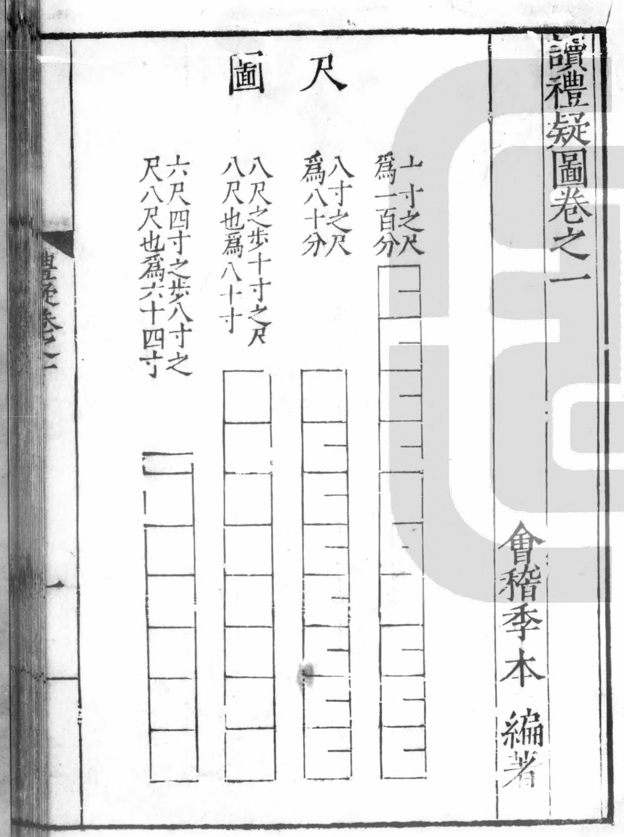 讀禮疑圖卷之一
會稽季本編著
尺圖
十寸之尺
爲一百分
八寸之尺
爲八十分
八尺之步十寸之尺
八尺也爲八十寸
六尺四寸之步八寸之
尺八尺也爲六十四寸
禮疑卷之一
一